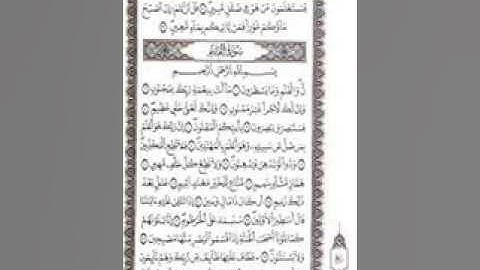 فَسَتَعْلَمُونَ مَنْ هُوَ فِي ضَلَٰلٍ مُّبِينٍ ۝ قُلْ أَرَءَيْتُمْ إِنْ أَصْبَحَ
مَآؤُكُمْ غَوْرًا فَمَن يَأْتِيكُم بِمَآءٍ مَّعِينٍ ۝
سُورَةُ الْقَلَمِ
بِسْمِ ٱللَّهِ ٱلرَّحْمَٰنِ ٱلرَّحِيمِ
نٓ وَٱلْقَلَمِ وَمَا يَسْطُرُونَ ۝ مَآ أَنتَ بِنِعْمَةِ رَبِّكَ بِمَجْنُونٍ ۝
وَإِنَّ لَكَ لَأَجْرًا غَيْرَ مَمْنُونٍ ۝ وَإِنَّكَ لَعَلَىٰ خُلُقٍ عَظِيمٍ ۝
فَسَتُبْصِرُ وَيُبْصِرُونَ ۝ بِأَييِّكُمُ ٱلْمَفْتُونُ ۝ إِنَّ رَبَّكَ هُوَ أَعْلَمُ
بِمَن ضَلَّ عَن سَبِيلِهِۦ وَهُوَ أَعْلَمُ بِٱلْمُهْتَدِينَ ۝ فَلَا تُطِعِ ٱلْمُكَذِّبِينَ ۝
وَدُّوا۟ لَوْ تُدْهِنُ فَيُدْهِنُونَ ۝ وَلَا تُطِعْ كُلَّ حَلَّافٍ مَّهِينٍ ۝
هَمَّازٍ مَّشَّآءٍۭ بِنَمِيمٍ ۝ مَّنَّاعٍ لِّلْخَيْرِ مُعْتَدٍ أَثِيمٍ ۝ عُتُلٍّۭ بَعْدَ
ذَٰلِكَ زَنِيمٍ ۝ أَن كَانَ ذَا مَالٍ وَبَنِينَ ۝ إِذَا تُتْلَىٰ عَلَيْهِ ءَايَٰتُنَا
قَالَ أَسَٰطِيرُ ٱلْأَوَّلِينَ ۝ سَنَسِمُهُۥ عَلَى ٱلْخُرْطُومِ ۝ إِنَّا بَلَوْنَٰهُمْ
كَمَا بَلَوْنَآ أَصْحَٰبَ ٱلْجَنَّةِ إِذْ أَقْسَمُوا۟ لَيَصْرِمُنَّهَا مُصْبِحِينَ ۝
وَلَا يَسْتَثْنُونَ ۝ فَطَافَ عَلَيْهَا طَآئِفٌ مِّن رَّبِّكَ وَهُمْ نَآئِمُونَ